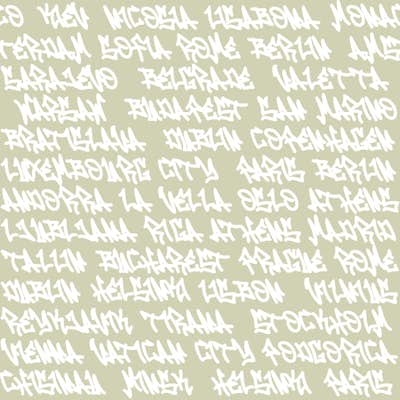 CO KIEV NICOSIA LISABONA MONA
TERDAM SOFIA ROME BERLIN AMS
SARAJEVO BELGRADE VALETTA
WARSAW BUDAPEST SAN MARINO
BRATISLAVA DUBLIN COPENHAGEN
LUXEMBOURG CITY PARIS BERLIN
ANDORRA LA VELLA OSLO ATHENS
LJUBLJANA RIGA ATHENS MADRID
TALLIN BUCHAREST PRAGUE ROME
DUBLIN HELSINKI LISBON VILNIUS
REYKJAVIK TIRANA STOCKHOLM
VIENNA VATICAN CITY PODGORICA
CHISINAU MINSK HELSINKI PARIS